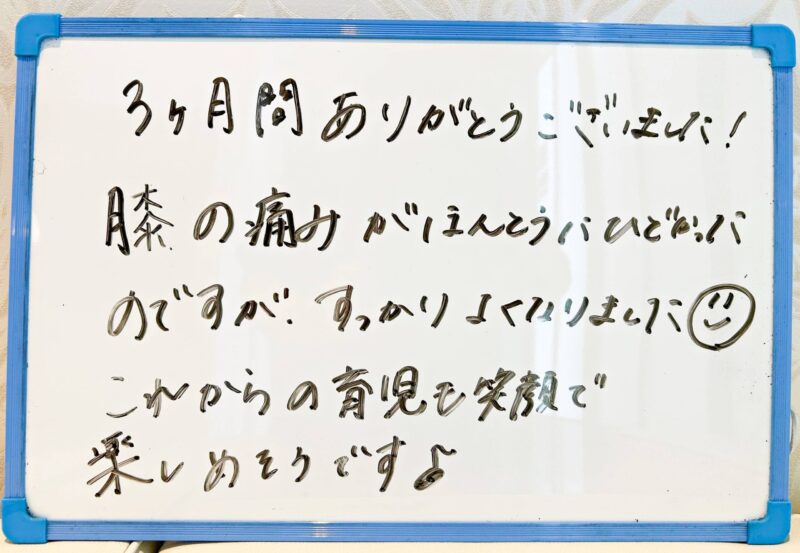 3ヶ月間ありがとうございました!
膝の痛みがほんとうにひどかった
のですが、すっかりよくなりました☺
これからの育児も笑顔で
楽しめそうです♪